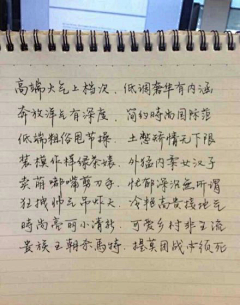 高端大气上档次、低调奢华有内涵
奔放洋气有深度、简约时尚国际范
低端粗俗甩节操、土憋矫情无下限
装模作样绿茶婊、外猛内柔女汉子
卖萌嘟嘴剪刀手、忧郁深沉无所谓
狂拽帅气吊炸天、冷艳高贵接地气
時尚亮丽小清新、可爱乡村非主流
贵族王朝杀馬特、提莫团战市须死